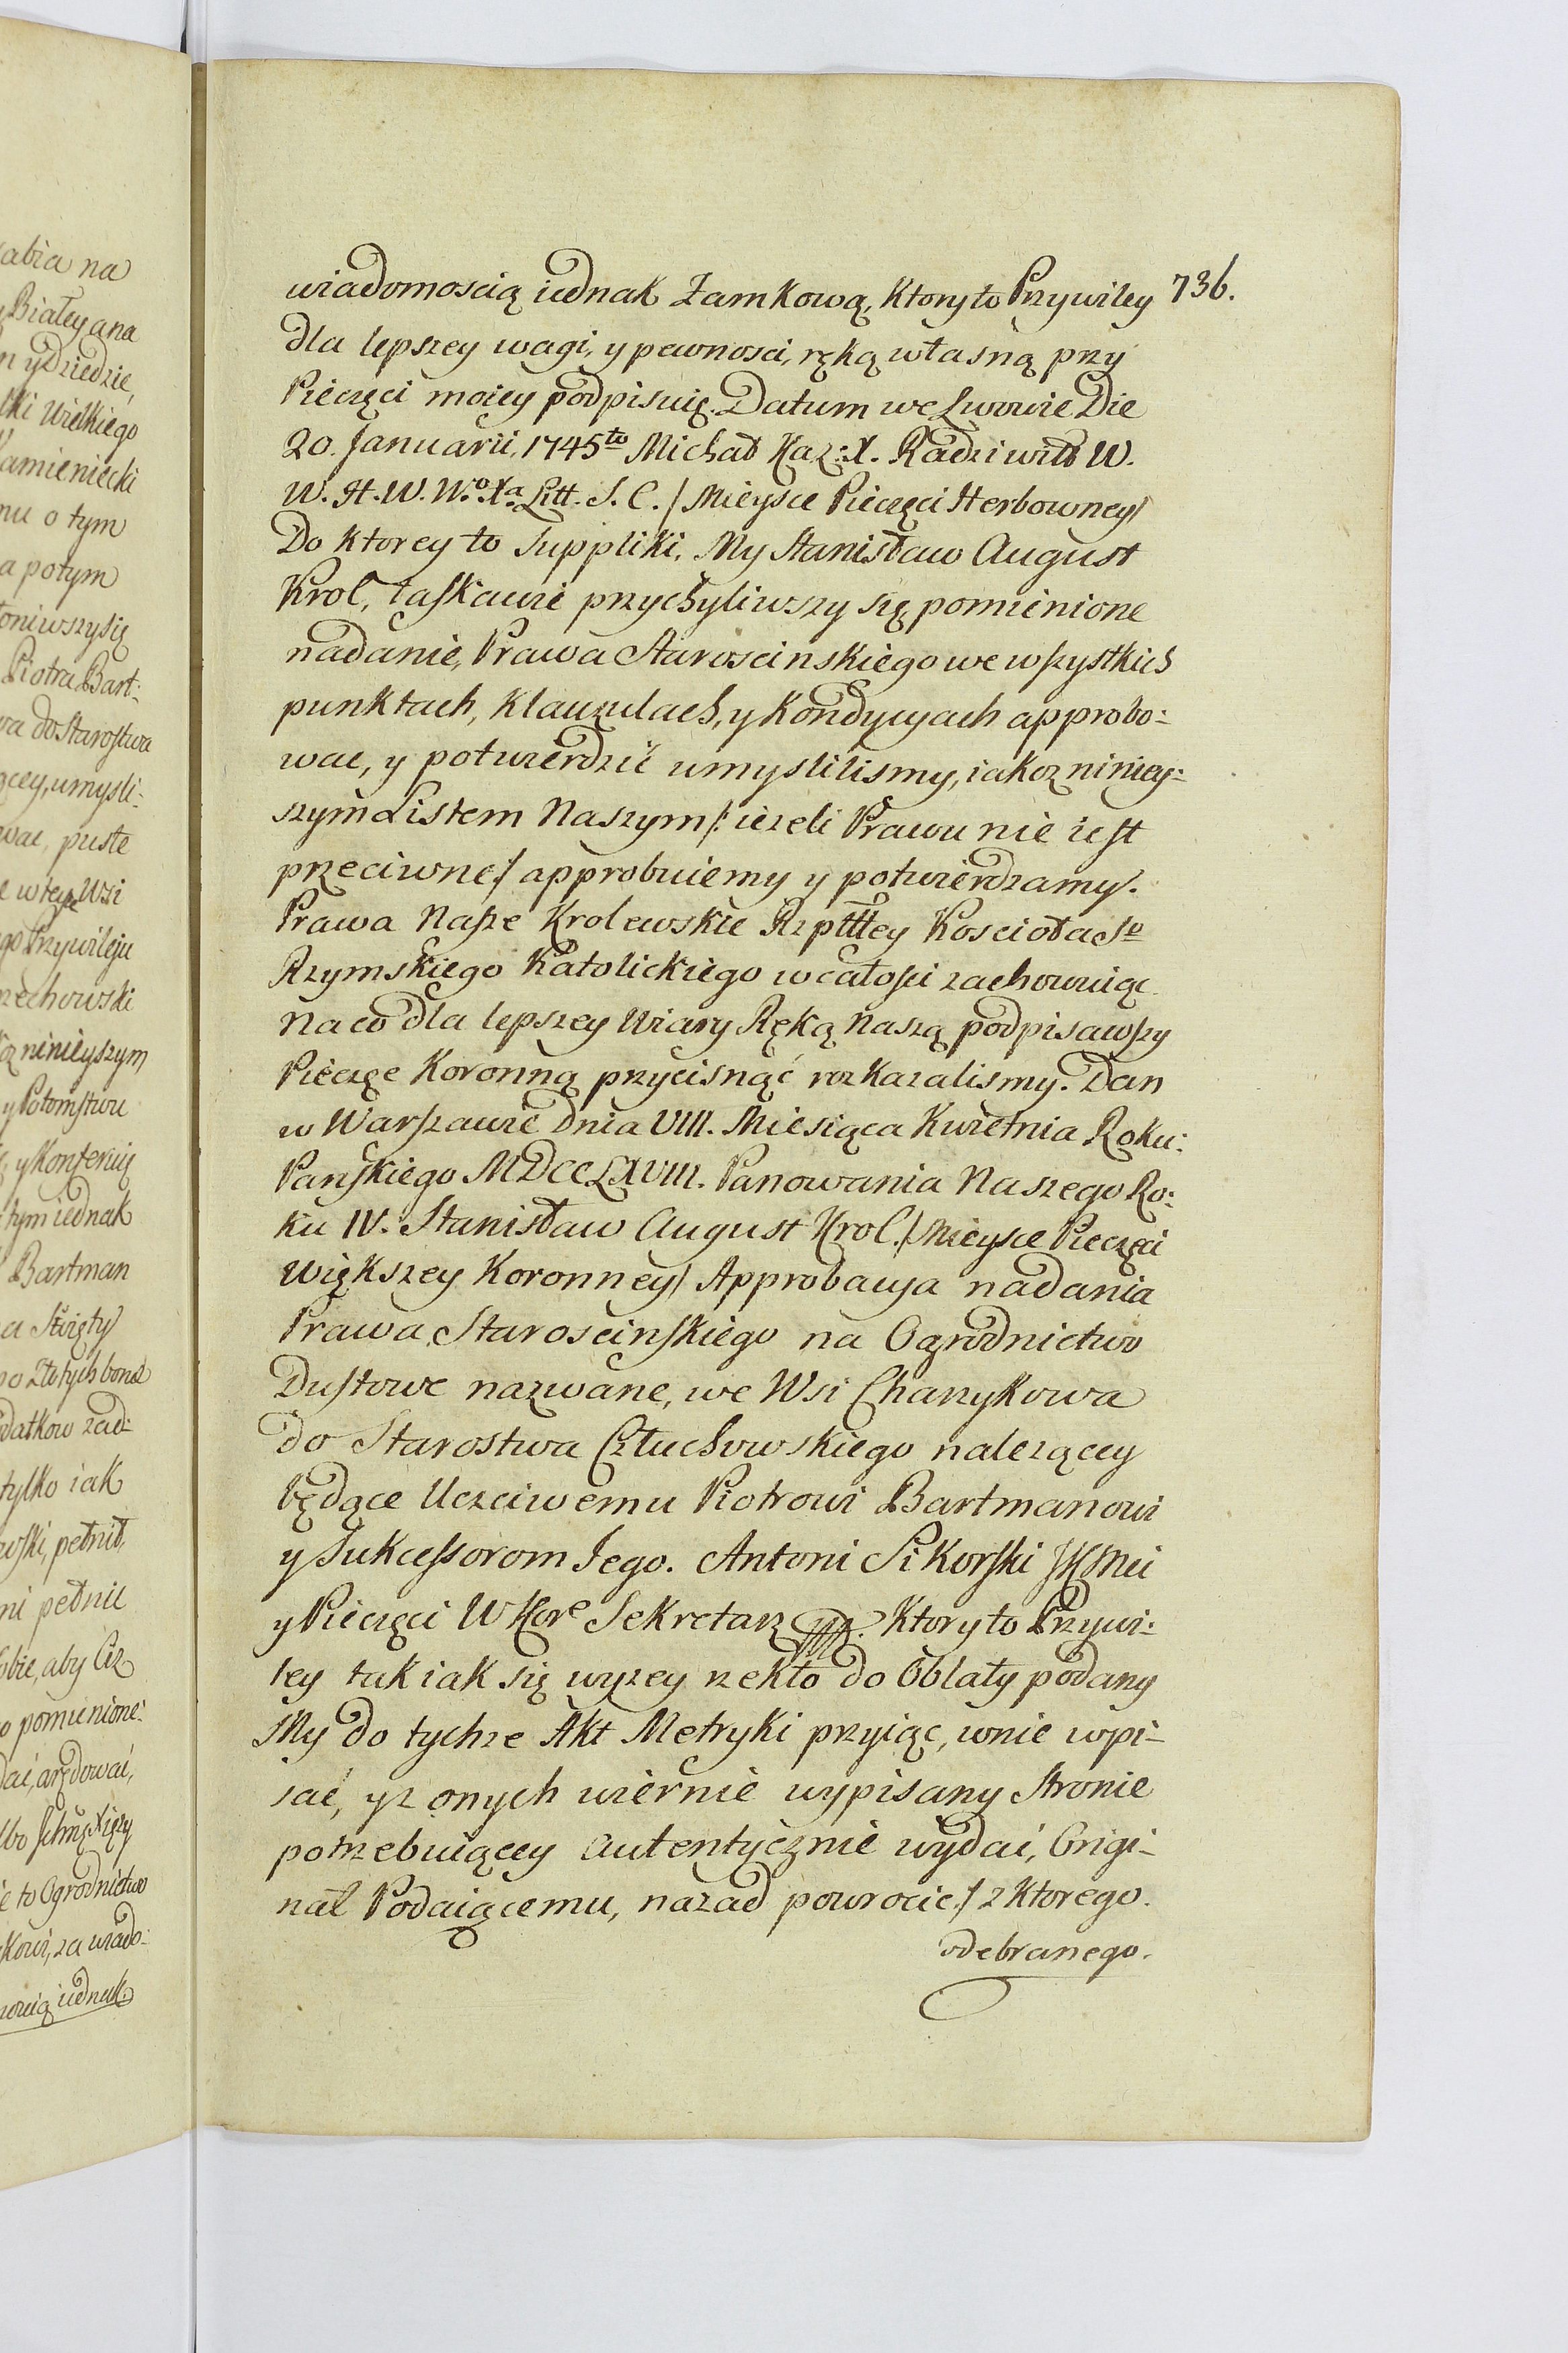 abia na
Białey ana
n y Dziedzic,
lki Wielkiego
Kamieniecki
mu o tym
a potym
oniwszy się
Piotra Bart:
wa do Starostwa
ącey, umysli:
wac, puste
e w teyże Wsi
go Przywileju
rzechowski
koz ninieyszym
y Potomstwu
y Konferuię
tym iednak
Bartman
a Swięty
po Złotych bona
datkow zad:
tylko iak
wski, pełnił,
ni pełnić
obie, aby Ciż
o pomienione:
dać, arędować,
lbo
ie to Ogrodnictwo
kowi, za wiado:
iednak
736.
wiadomoscią iednak Zamkową, Ktory to Przywiley
dla lepszey wagi, y pewnosci, ręką własną przy
Pieczęci moiey podpisuię. Datum we Lwowie Die
20. Januarii, 1745to Michał Kaz: X. Radziwiłł W.
W. H. W. W.o Xa Litt. S. C. / Mieysce Pieczęci Herbowney/
Do Ktorey to Suppliki, My Stanisław August
Krol, łaskawie przychyliwszy się pomienione
nadanie, Prawa Staroscinskiego we wszystkich
punktach, Klauzulach, y Kondycyach approbo:
wac, y potwierdzić umyslilismy, iakoz niniey:
szym Listem Naszym /: iezeli Prawu nie iest
przeciwne:/ approbuiemy y potwierdzamy.
Prawa Nasze Krolewskie Rzpttey Koscioła So
Rzymskiego Katolickiego w całosci zachowuiąc
Na co dla lepszey Wiary Ręką Naszą podpisawszy
Pieczęc Koronną przycisnąć rozkazalismy. Dan
w Warszawie Dnia VIII. Miesiąca Kwietnia Roku:
Panskiego MDCCLXVIII. Panowania Naszego Ro:
ku IV. Stanisław August Krol. / Mieysce Pieczęci
większey Koronney/ Approbacya nadania
Prawa Staroscinskiego na Ogrodnictwo
Dustowe nazwane, we Wsi Charzykowa
do Starostwa Człuchowskiego nalezącey
będące Uczciwemu Piotrowi Bartmanowi
y Sukcessorom Jego. Antoni Sikorski JKMci
y Pieczęci WKore Sekretarz mp. Ktory to Przywi:
ley tak iak się wyzey rzekło do Oblaty podany
My do tychze Akt Metryki przyiąc, w nie wpi-
sać, y z onych wiernie wypisany Stronie
potrzebuiącey autentycznie wydać, Origi-
nał Podaiącemu, nazad powrocic / z Ktorego.
odebranego.